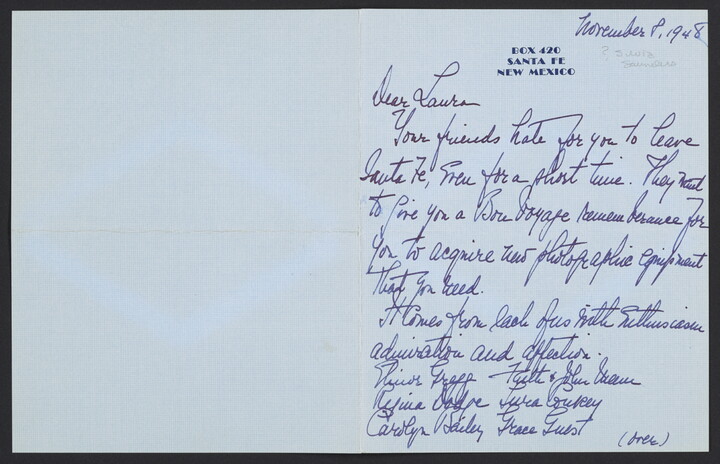 November 8, 1948
? Silvia
Saunders
BOX 420
SANTA FE
NEW MEXICO
Dear Laura
Your friends hate for you to leave
Santa Fe, even for a short time. They want
to give you a Bon Voyage rememberance for
you to acquire new photographic equipment
that you need.
It comes from each of us with enthusiasm
admiration and affection.
Elinor Gregg Faith & John Meem
Regina Dodge Lura Conkey
Carolyn Bailey Grace Guest
(over)